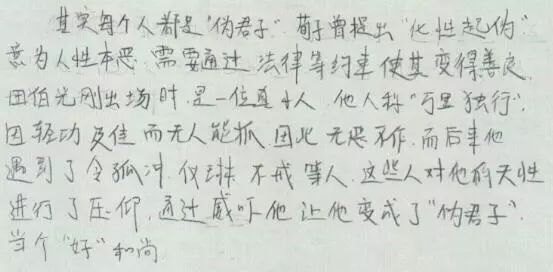 其实每个人都是"伪君子". 荀子曾提出"化性起伪"
意为人性本恶 需要通过 法律等约束 使其变得善良.
田伯光刚出场时 是一位真小人. 他人称"万里独行".
因轻功极佳 而无人能抓. 因此 无恶不作. 而后来他
遇到了令狐冲. 仪琳. 不戒等人. 这些人对他的天性
进行了压抑. 通过威吓他 让他变成了"伪君子".
当个"好"和尚